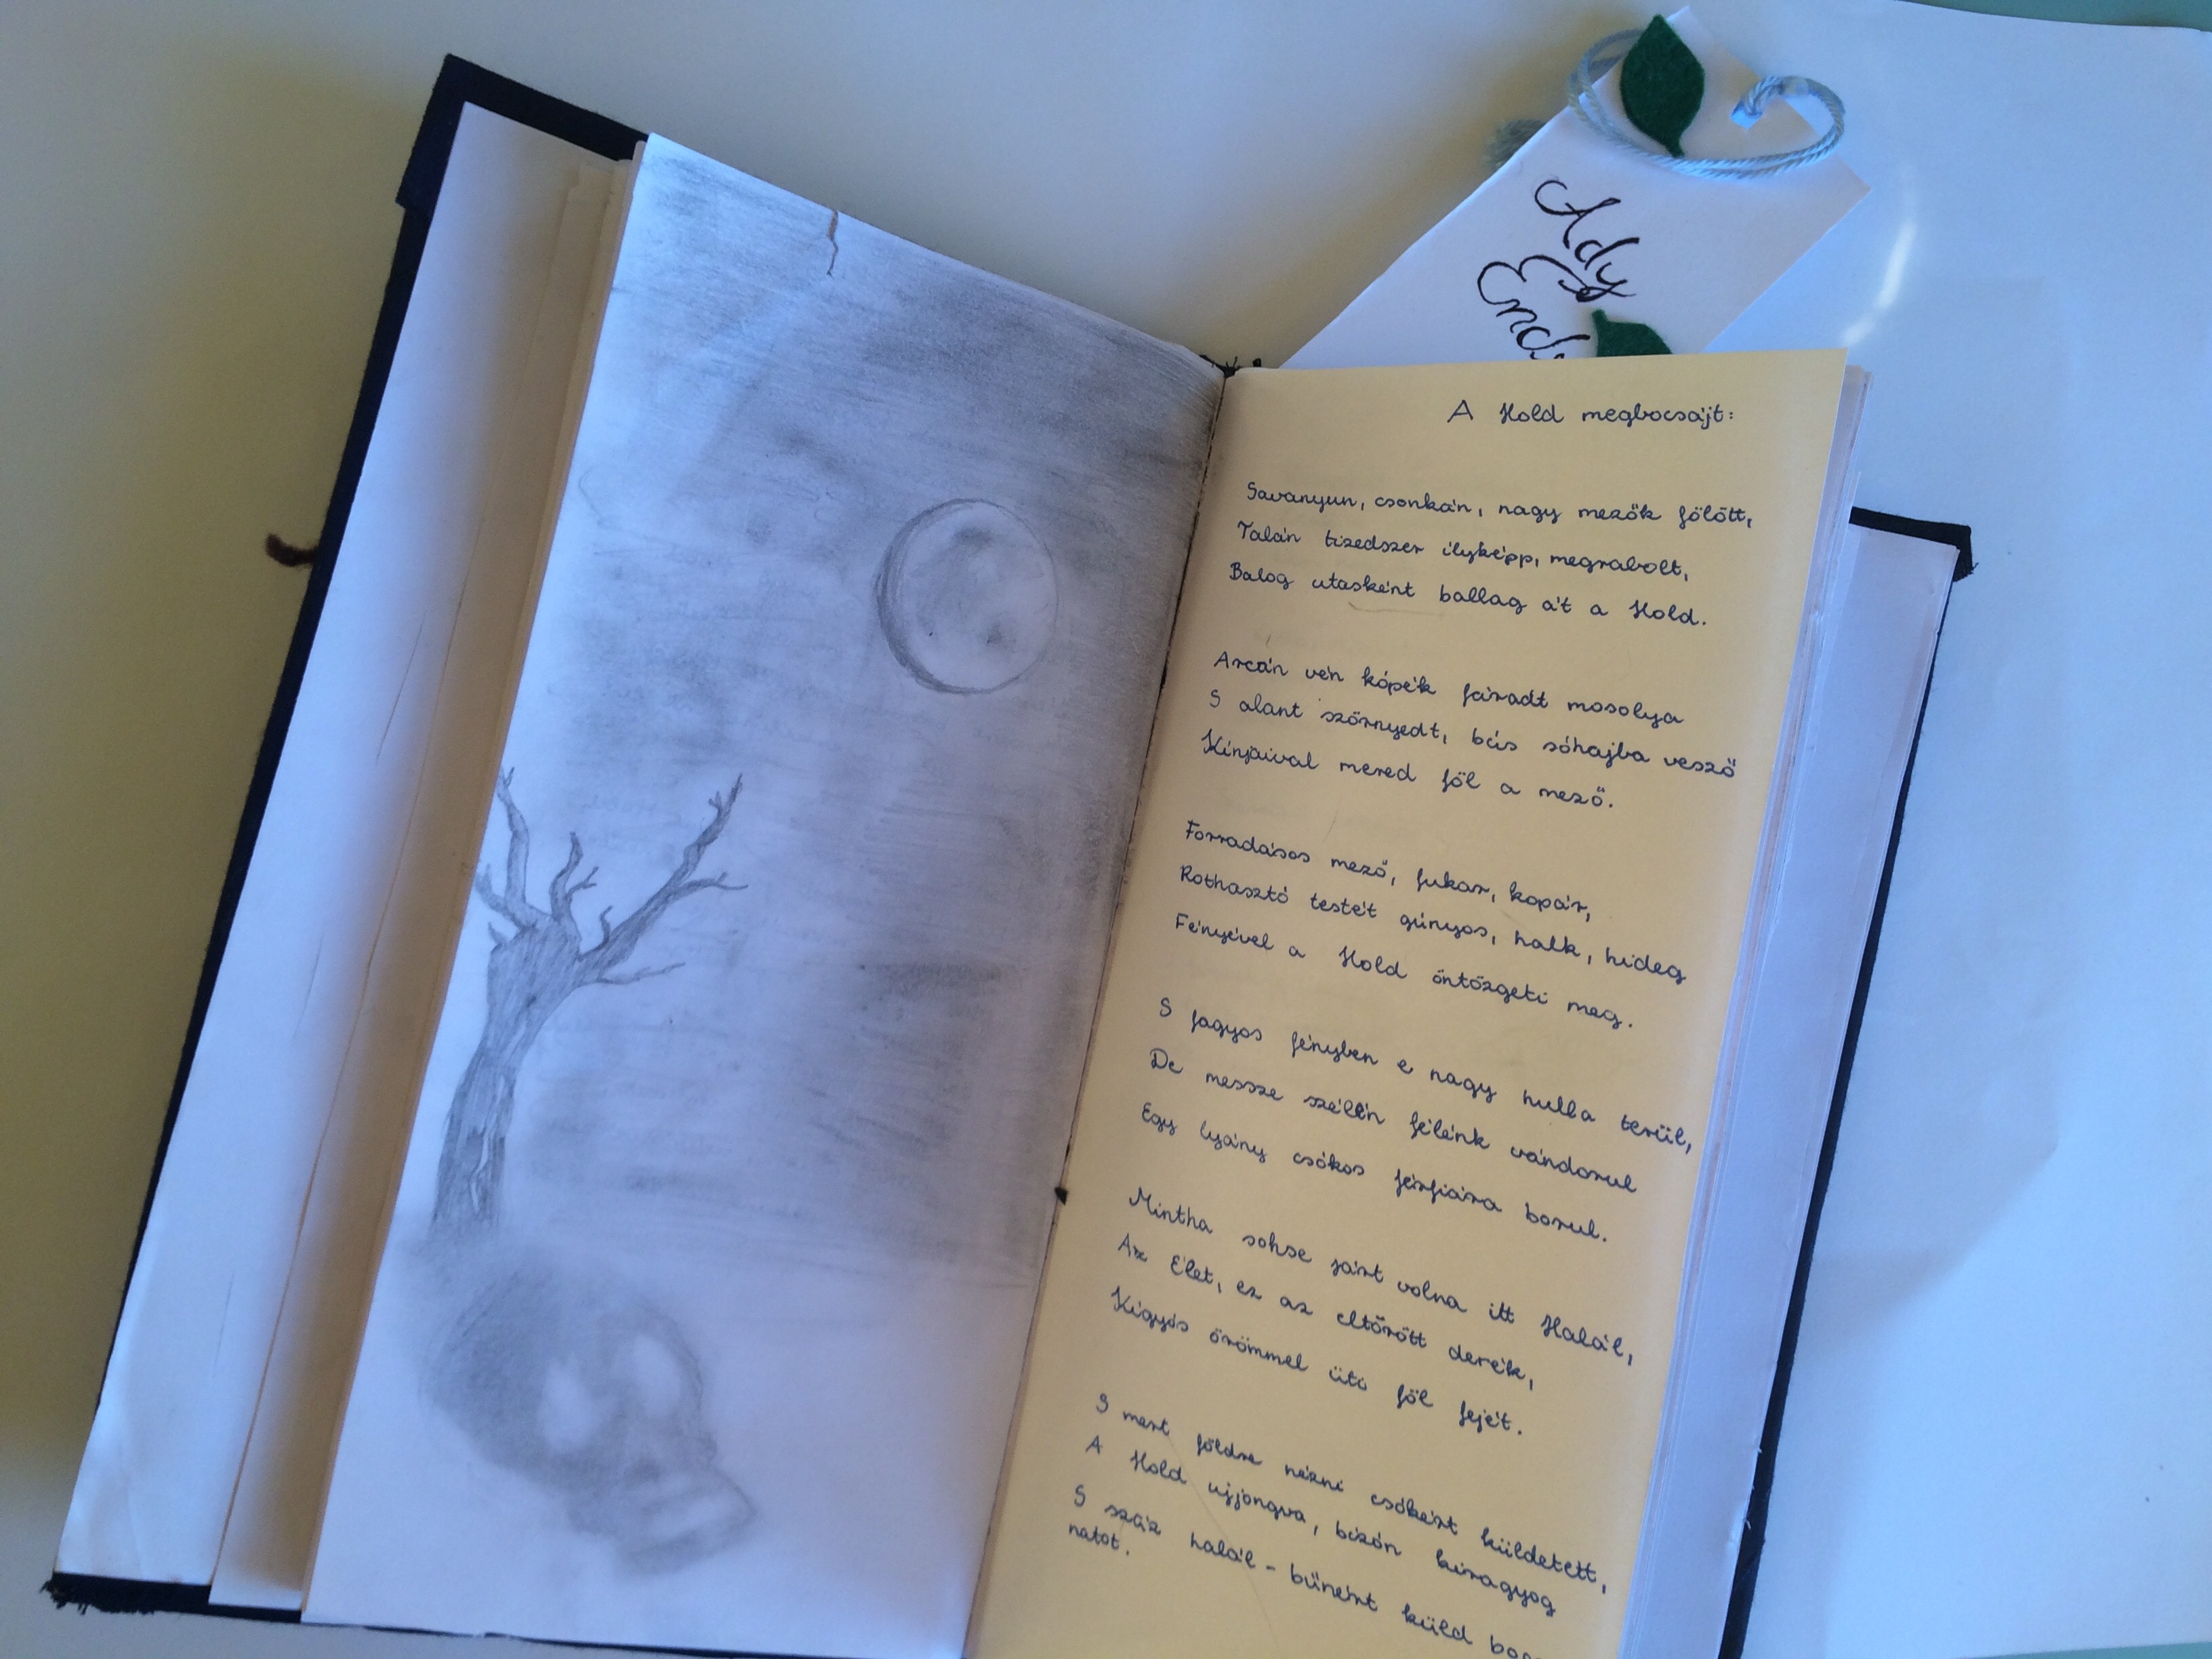 Ady
A Hold megbocsájt:
Savanyun, csonkán, nagy mezők fölött,
Talán tizedszer ilyképp, megrabolt,
Balog utasként ballag át a Hold.
Arcán vén kópék fáradt mosolya
S alant szörnyedt, bús sóhajba vesző
Kínjaival mered föl a mező.
Forradásos mező, fukar, kopár,
Rothasztó testét gúnyos, halk, hideg
Fényével a Hold öntözgeti meg.
S fagyos fényben e nagy hulla terül,
De messze szélén félénk vándorul
Egy lyány csókos férfiára borul.
Mintha sohse járt volna itt Halál,
Az Élet, ez az eltörött derék,
Kígyós örömmel üti föl fejét.
S mert földre nézni csókért küldetett,
A Hold ujjongva, bízón kiragyog
S száz halál-bűnért küld
natot.